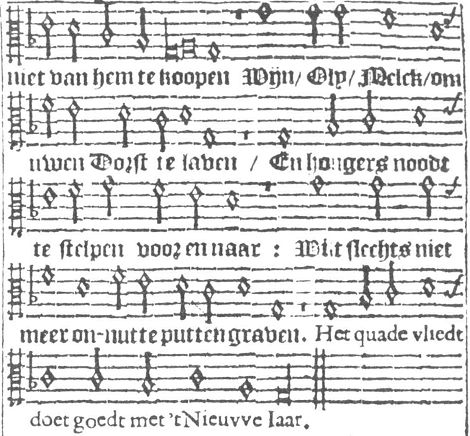 niet van hem te koopen Wijn/ Oly/ Melck/ om
uwen Dorst te laven / En hongers noodt
te stelpen voor en naar : Wilt slechts niet
meer on-nutte putten graven. Het quade vliedt
doet goedt met 't Nieuvve Iaar.